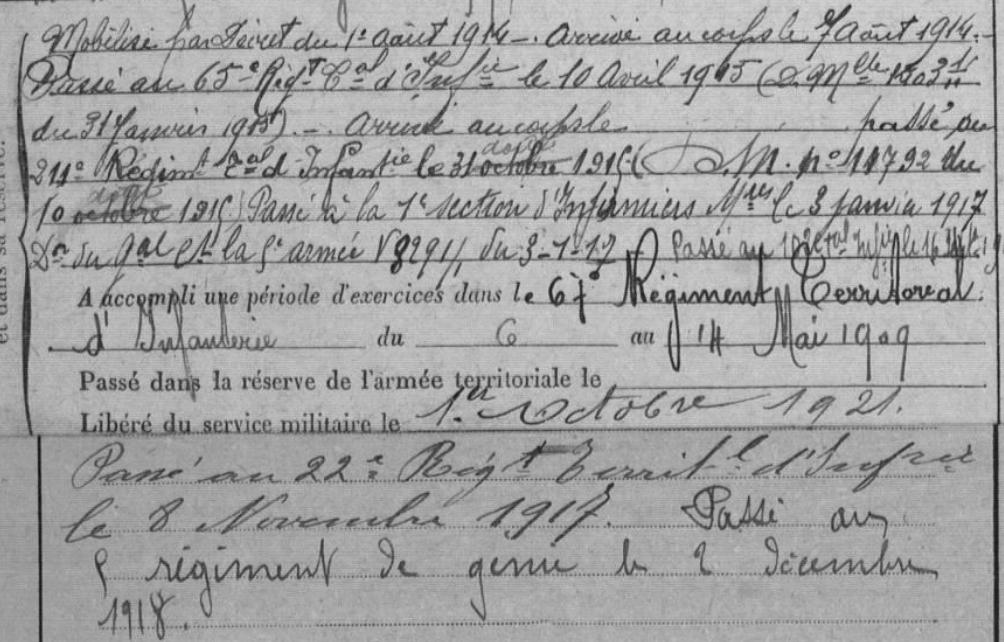 Mobilisé par Décret du 1er août 1914 - . Arrivé au corps le 7 août 1914. -
Passé au 65e Régt Tal d'Infie le 10 Avril 1915 (D. Mlle
du 31 Janvier 1915) . - Arrivé au corps le passé au
août
211e Régimt Tal d'Infantie le 31 octobre 1915 ( D.M. no 11792 du
août
10 octobre 1915) Passé à la 1e section d'Infirmiers Mres le 3 janvier 1917
Don du Gal Ct la 5e armée N 8291/, du 3-1-17 Passé au Tal Infie le 16
et dans sa réserve.
A accompli une période d'exercices dans le 67e Régiment Territorial
d'Infanterie du 6 au 14 Mai 1909
Passé dans la réserve de l'armée territoriale le
Libéré du service militaire le 1er Octobre 1921.
Passé au 22e Régt Territ.l d'Infrie
le 8 Novembre 1917. Passé au
5 régiment de génie le 2 décembre
1918.